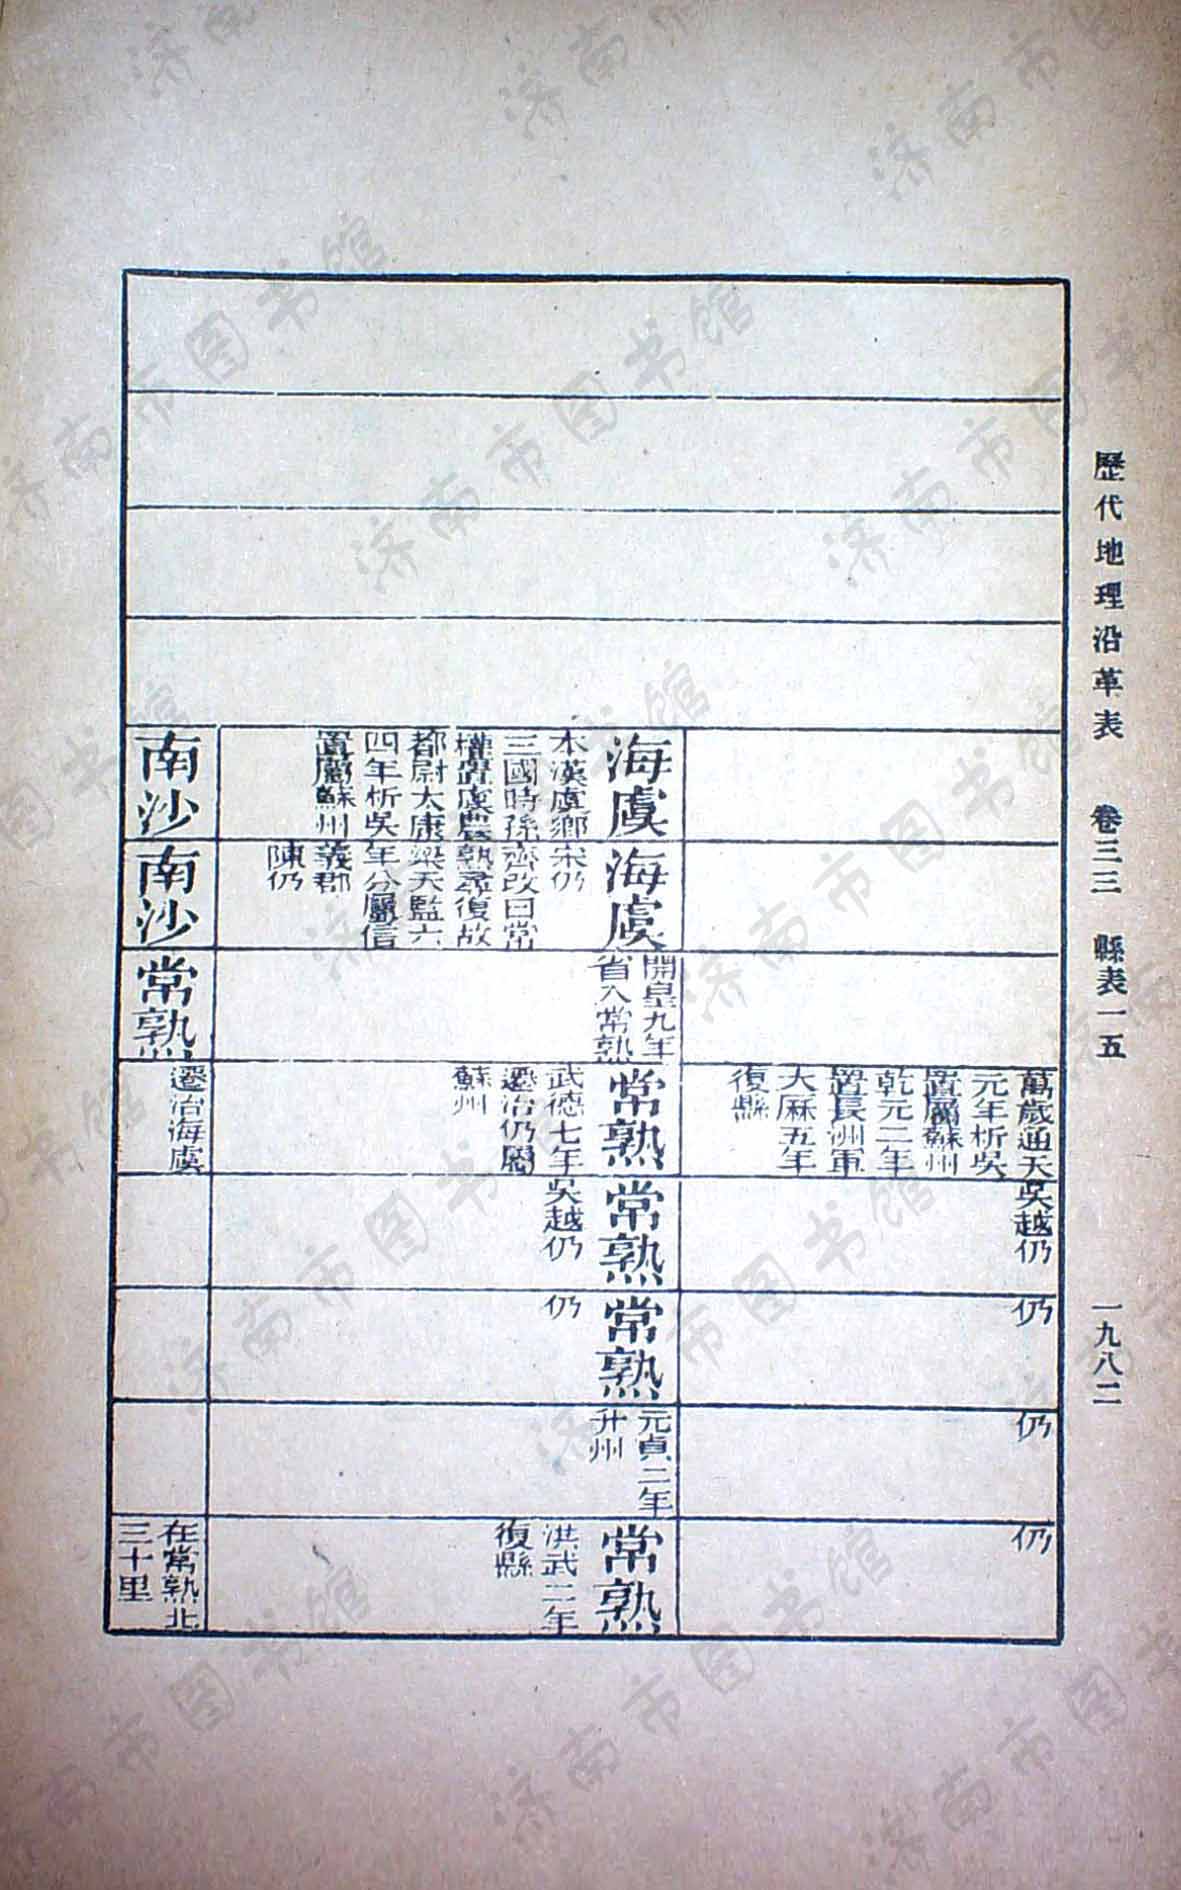 歷代地理沿革表　卷三三　縣表一五　一九八二
萬歲通天
元年析吳
置屬蘇州
乾元二年
置長洲軍
大厤五年
復縣
吳越仍
仍
仍
仍
海虞
本漢虞鄉
三國時孫
權置虞農
都尉太康
四年析吳
置屬蘇州
海虞
宋仍
齊改曰常
熟尋復故
梁天監六
年分屬信
義郡
陳仍
開皇九年
省入常熟
常熟
武德七年
遷治仍屬
蘇州
常熟
吳越仍
常熟
仍
元貞二年
升州
常熟
洪武二年
復縣
南沙
南沙
常熟
遷治海虞
在常熟北
三十里
济南市图书馆